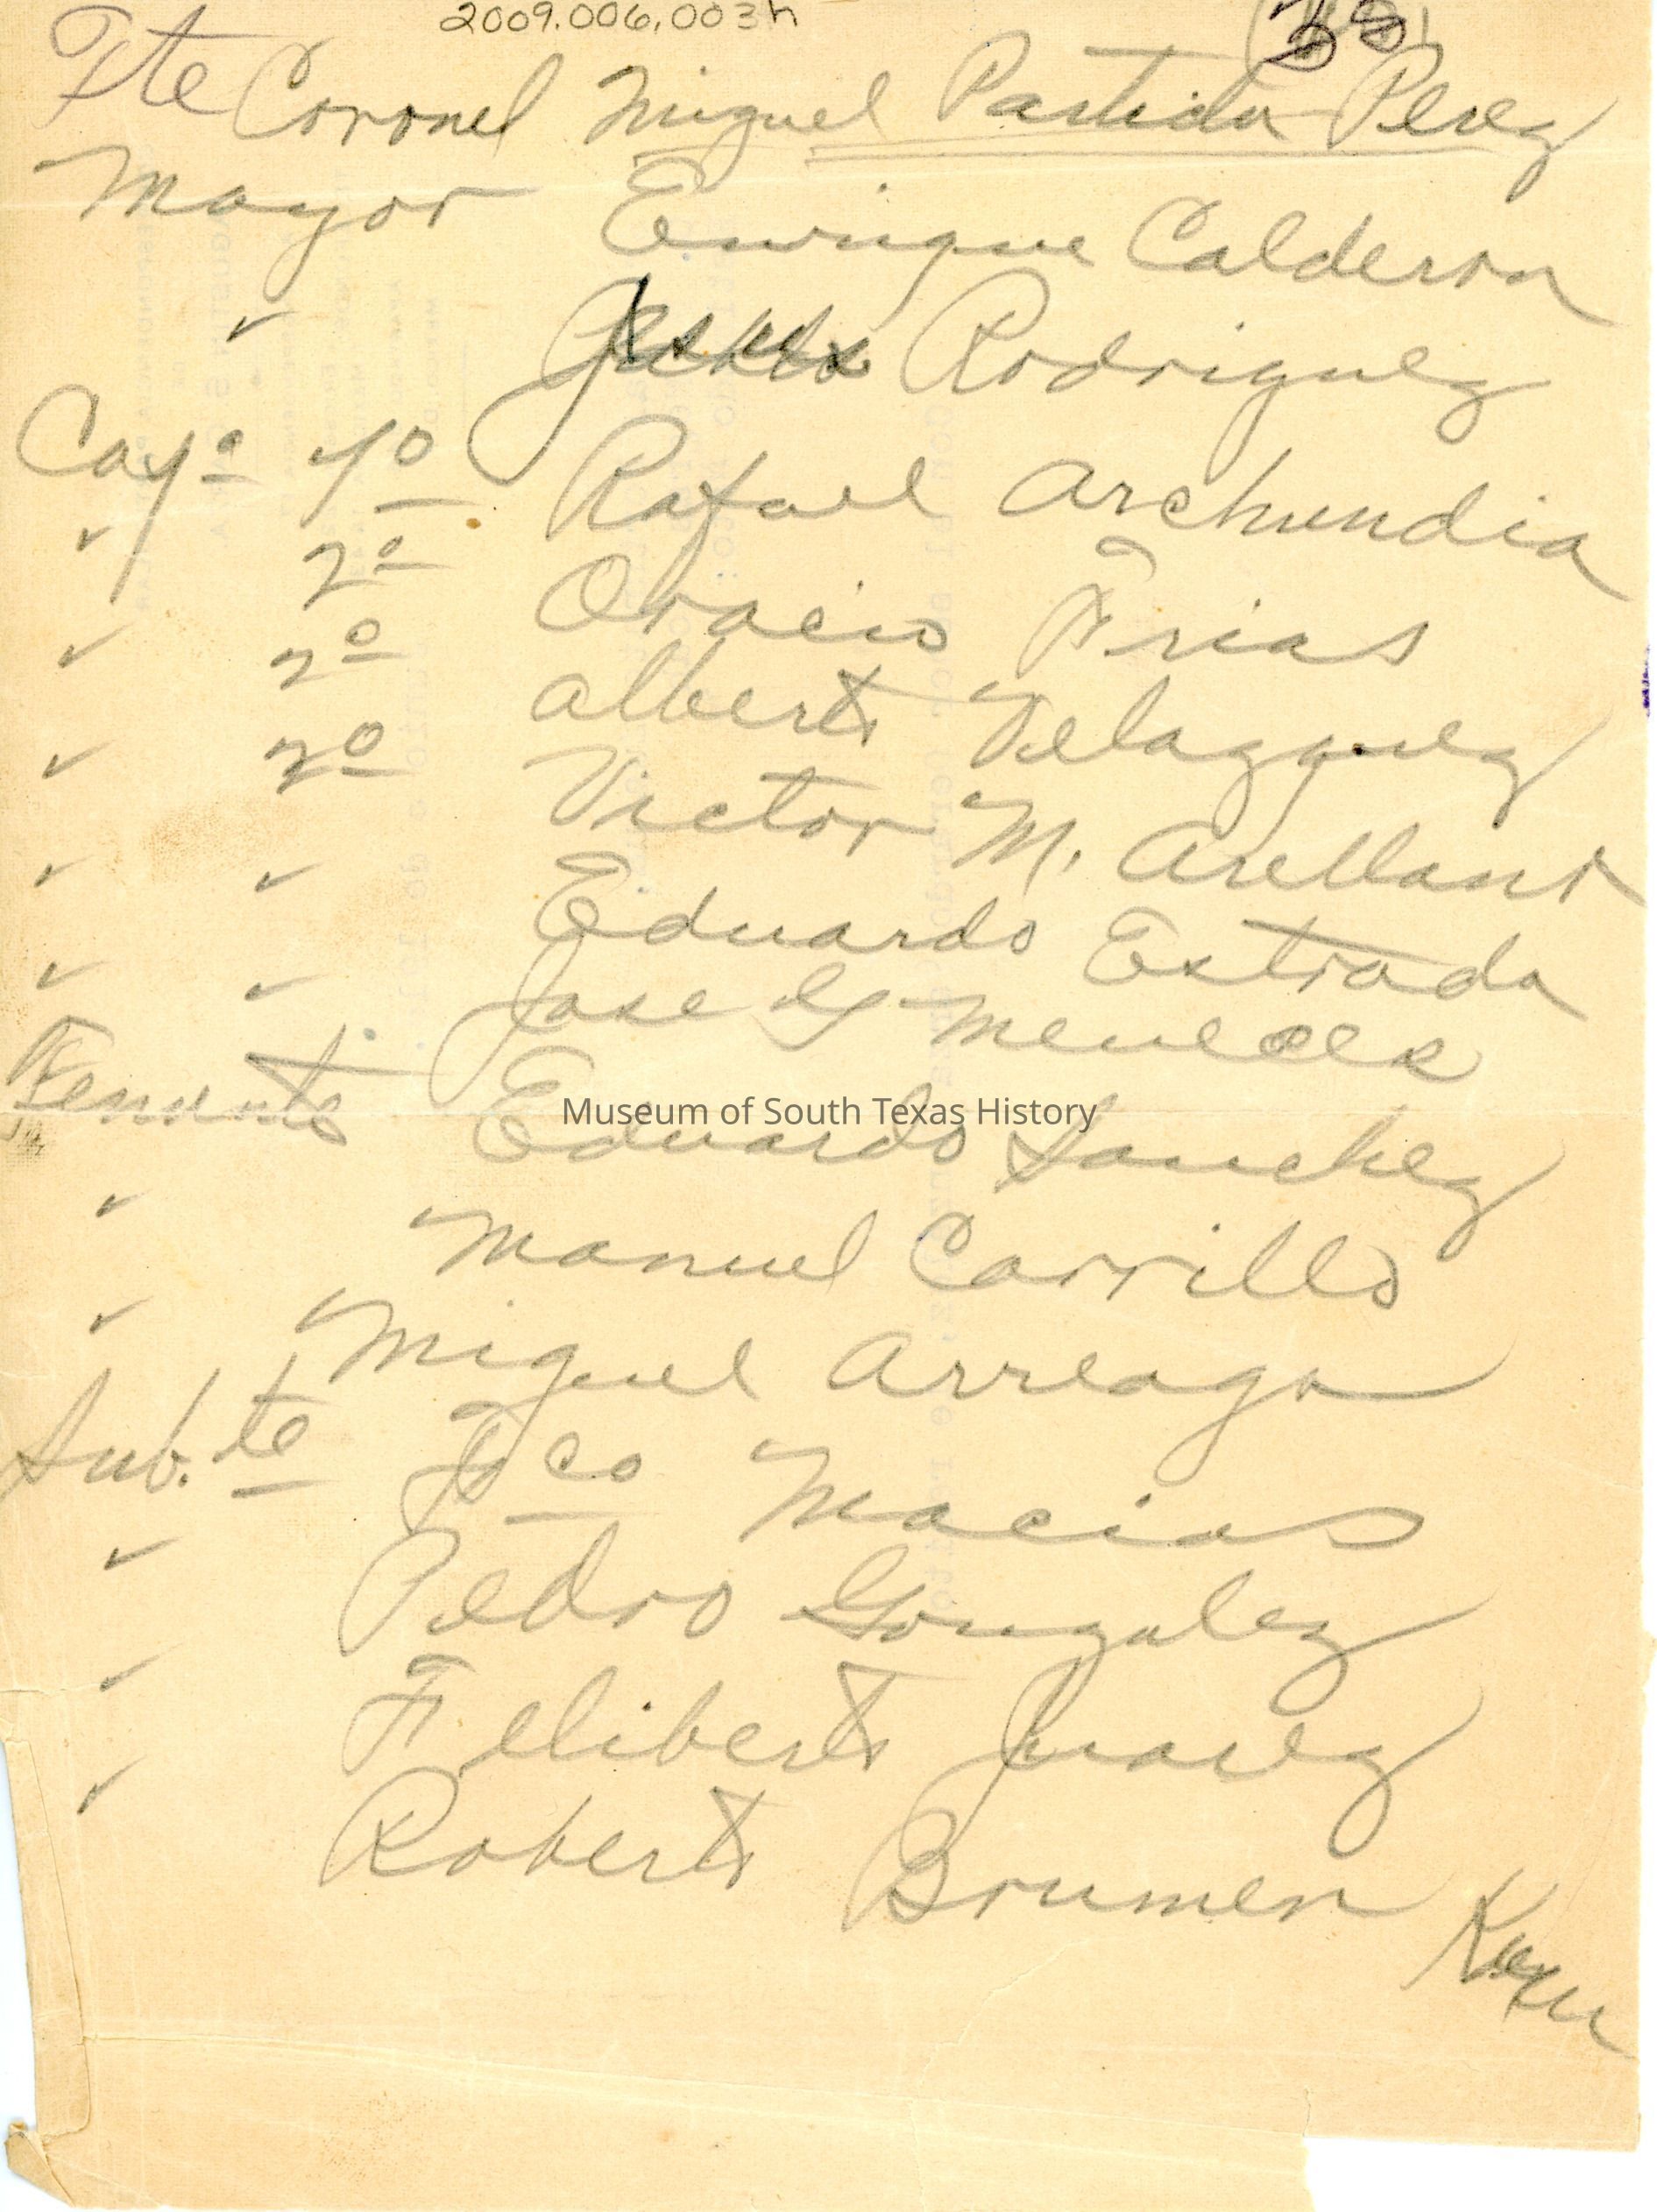 2009.006.003h
38
Tte Coronel Miguel Partida Perez
Mayor Enrique Calderon
" Jesus Rodriguez
Capn 1o Rafael Archundia
" 2o Oracio Frias
" 2o Alberto Velazquez
" 2o Victor M. Arellano
" " Eduardo Estrada
" " Jose G Meneses
Teniente Eduardo Sanchez
" Manuel Carrillo
" Miguel Arreaga
Sub.te Fco Macias
" Pedro Gonzalez
" Feliberto Juarez
" Roberto Brumen
Museum of South Texas History